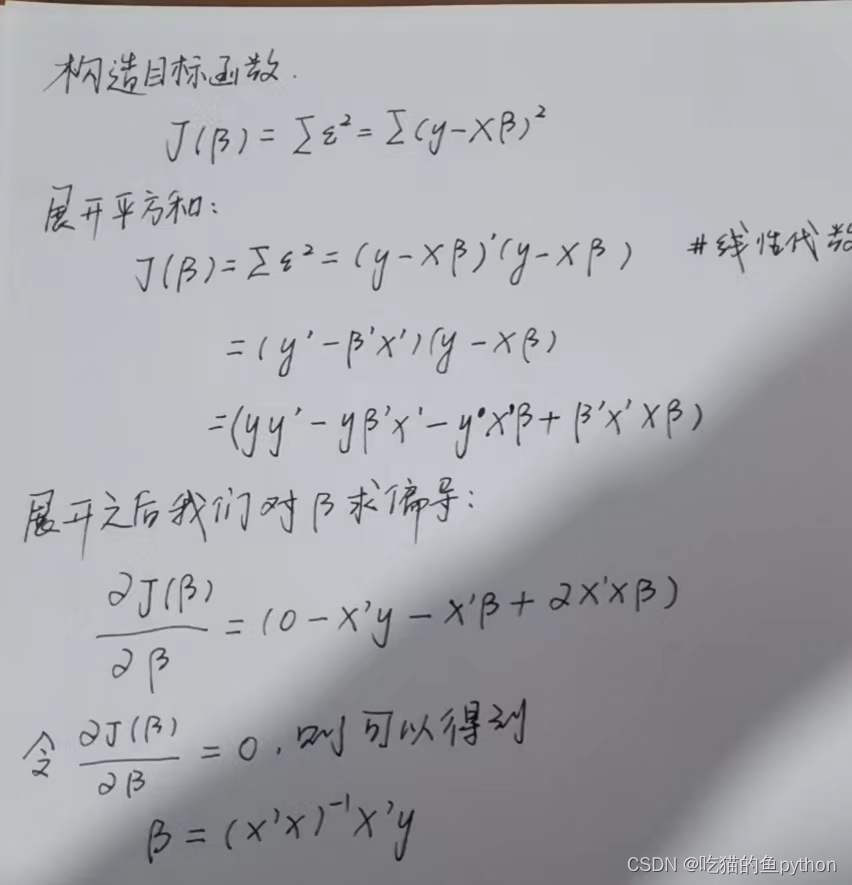 构造目标函数.
J(β) = Σε² = Σ(y-Xβ)²
展开平方和:
J(β) = Σε² = (y-Xβ)'(y-Xβ) #线性代数
= (y'-β'X')(y-Xβ)
= (yy' - yβ'x' - y'X'β + β'X'Xβ)
展开之后我们对β求偏导:
∂J(β)/∂β = (0 - X'y - X'β + 2X'Xβ)
令 ∂J(β)/∂β = 0, 则可以得到
β = (X'X)⁻¹X'y
CSDN @吃猫的鱼python